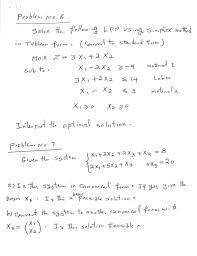 Problem No. 6
Solve the following LPP using simplex method
in Tableau form. (Convert to standard form)
Max Z = 3X₁ + 2X₂
sub. to. X₁ - 2X₂ ≥ -4 material 1
3X₁ + 2X₂ ≤ 14 Labor
X₁ - X₂ ≤ 3 material 2
X₁ ≥ 0 X₂ ≥ 0
Interpret the optimal solution.
Problem No. 7
Given the system { X₁ + 2X₂ + 3X₃ + X₄ = 8
2X₁ + 5X₂ + X₃ + X₅ = 20
a) Is this system in canonical form. If yes give the
basis X_B. Is this a basic feasible solution.
b) Convert the system to another canonical form w.
X_B = (X₁ X₂). Is this solution feasible.